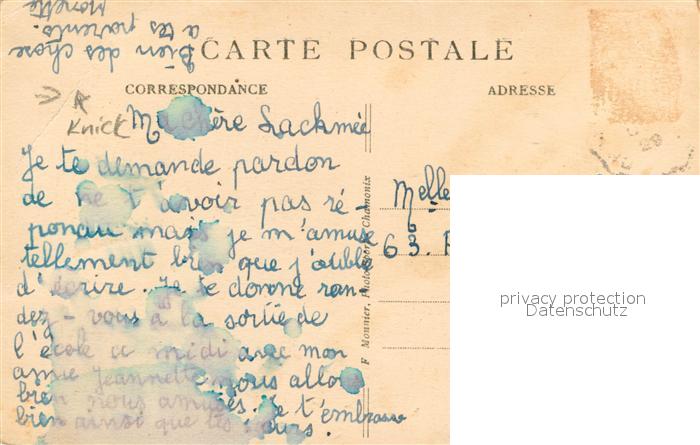 CARTE POSTALE
CORRESPONDANCE
ADRESSE
Knick
Ma chère Lackmée
Je te demande pardon
de ne t'avoir pas ré-
pondu mais je m'amuse
tellement bien que j'oublie
d'écrire. Je te donne ran
dez-vous à la sortie de
l'école a midi avec mon
amie Jeannette nous allons
bien nous amuser. Je t'embrasse
bien ainsi que tes sœurs.
Bien des chose
a tes parents.
Monette
Melle
63.
F Monnier, Photo Chamonix
28
privacy protection
Datenschutz